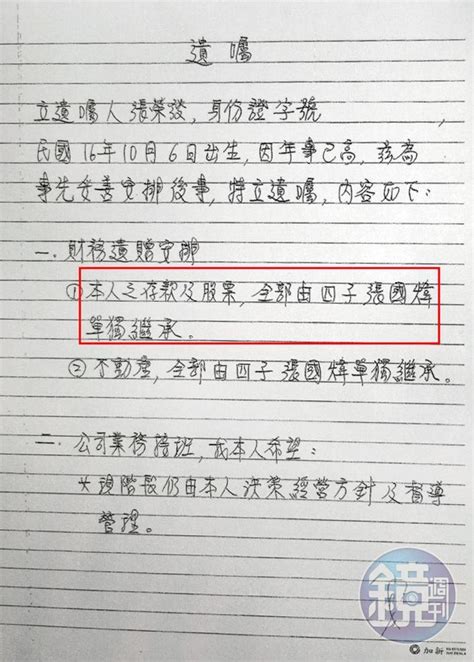 遺囑
立遺囑人張榮發，身份證字號　　　，
民國16年10月6日出生，因年事已高，茲為
事先妥善安排後事，特立遺囑，內容如下：
一．財務遺贈安排
①本人之存款及股票，全部由四子張國煒
單獨繼承。
②不動產，全部由四子張國煒單獨繼承。
二．公司業務接班，我本人希望：
*現階段仍由本人決策經營方針及督導
管理。
鏡週刊
加新